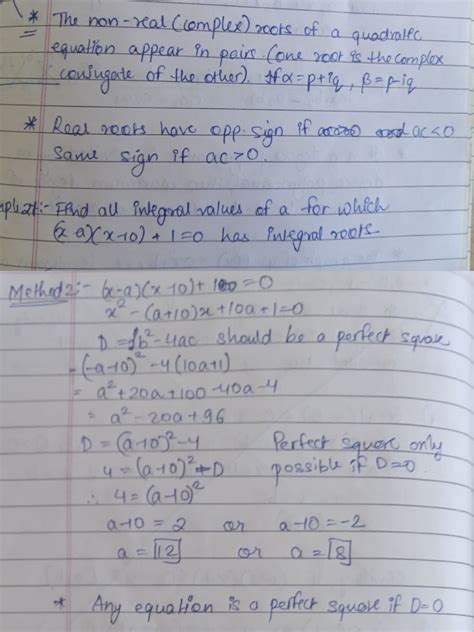 * The non-real (complex) roots of a quadratic
equation appear in pairs. (one root is the complex
conjugate of the other). If α = p+iq, β = p-iq
* Real roots have opp. sign if ac<0
Same sign if ac>0.
Find all integral values of a for which
(x-a)(x-10)+1=0 has integral roots.
Method 2:- (x-a)(x-10)+1=0
x² - (a+10)x + 10a+1=0
D = b²-4ac should be a perfect square
= (-a-10)² - 4(10a+1)
= a²+20a+100-40a-4
= a²-20a+96
D = (a-10)²-4 Perfect square only
4 = (a-10)²-D possible if D=0
∴ 4 = (a-10)²
a-10 = 2 or a-10 = -2
a = 12 or a = 8
* Any equation is a perfect square if D=0